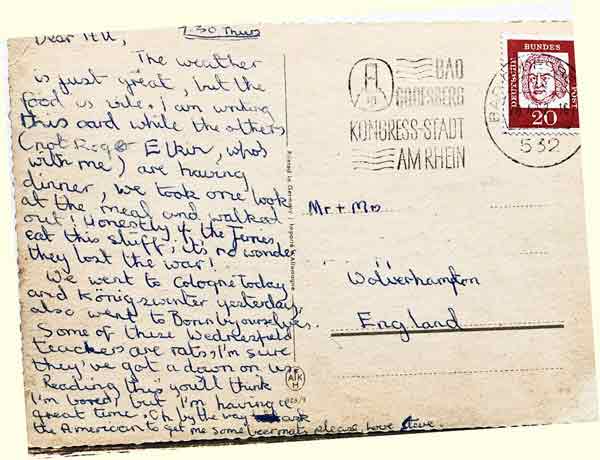 7.30 Thurs
Dear All,
The weather
is just great, but the
food is vile. i am writing
this card while the others
(not Roger Elkin, who's
with me) are having
dinner, we took one look
at the meal and walked
out! Honestly if the Jerries
eat this stuff, it's no wonder
they lost the war!
We went to Cologne Today
and Königswinter yesterday,
also went to Bonn by ourselves.
Some of these Wednesfield
teachers are rats, I'm sure
they've got a down on us.
Reading this you'll think
I'm bored, but I'm having a
great time. Oh by the way ask
the American to get me some beermats please, love Steve.
Printed in Germany
AKH
BAD
GODESBERG
KONGRESS-STADT
AM RHEIN
DEUTSCHE BUNDES POST
20
BAD
532
Mr + Mrs
Wolverhampton
England